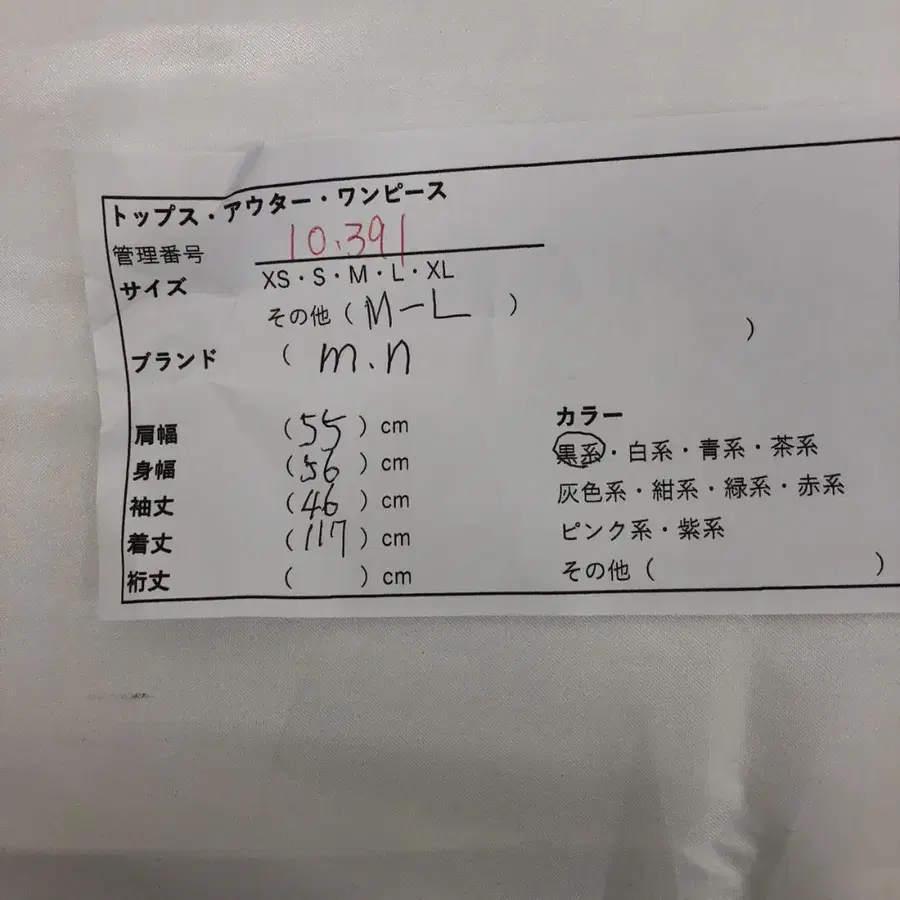 トップス・アウター・ワンピース
管理番号 10.391
サイズ XS・S・M・L・XL
その他 ( M-L )
ブランド ( m.n )
肩幅 ( 55 ) cm
身幅 ( 56 ) cm
袖丈 ( 46 ) cm
着丈 ( 117 ) cm
裄丈 ( ) cm
カラー
黒系・白系・青系・茶系
灰色系・紺系・緑系・赤系
ピンク系・紫系
その他 ( )